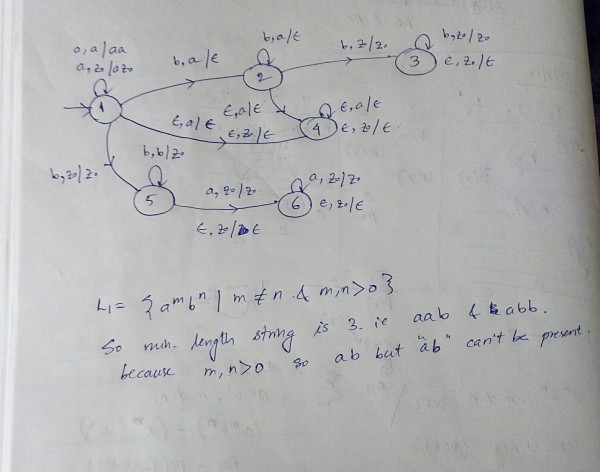 a, a/aa
a, z₀/az₀
b, a/ε
b, a/ε
b, z/z₀
b, z₀/z₀
ε, z₀/ε
1
2
3
ε, a/ε
ε, a/ε
ε, z₀/ε
4
ε, a/ε
ε, z₀/ε
b, z₀/z₀
b, b/z₀
5
a, z₀/z₀
ε, z₀/ε
6
a, z₀/z₀
ε, z₀/ε
L₁ = { aᵐbⁿ | m ≠ n & m,n>0 }
So min. length string is 3. ie aab & abb.
because m,n>0 so ab but "ab" can't be present.